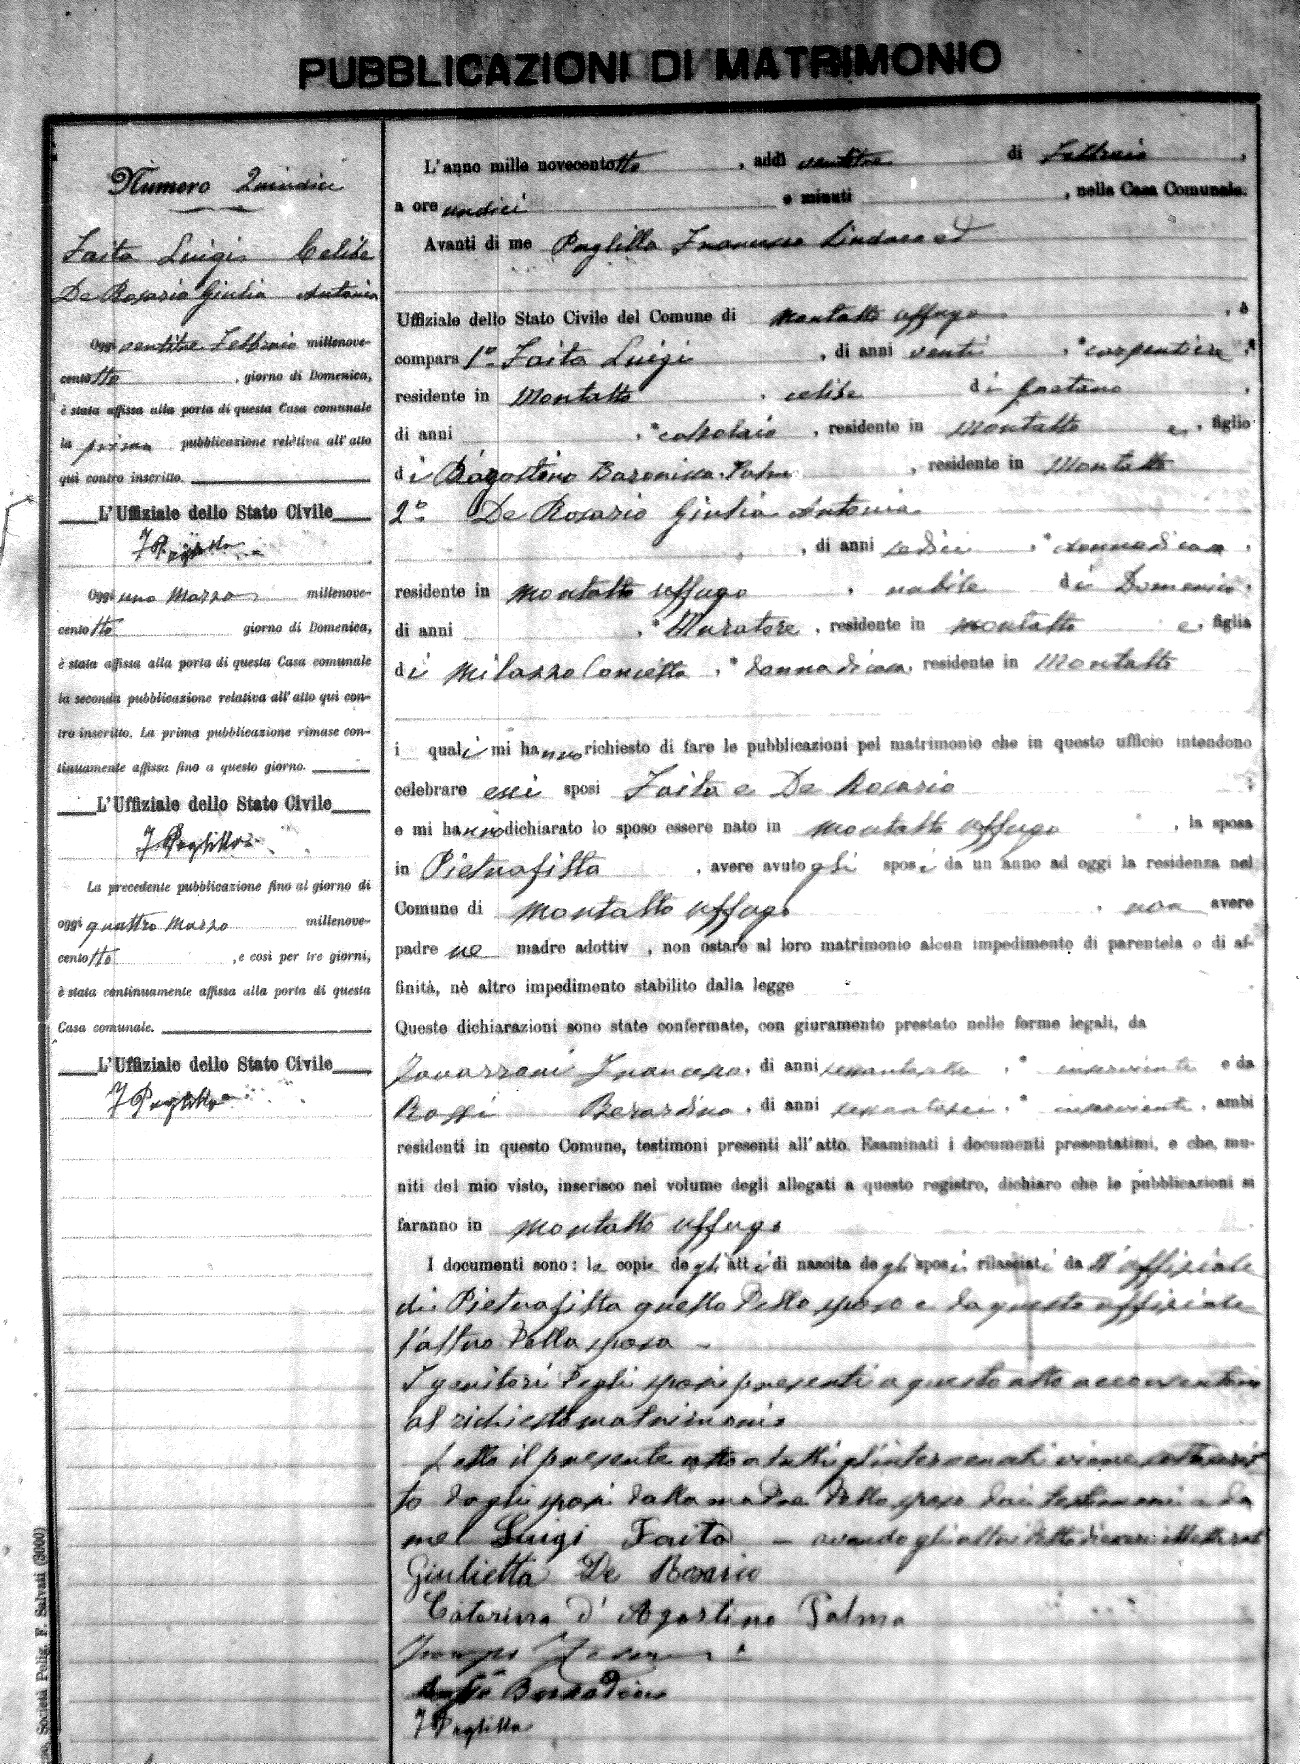 PUBBLICAZIONI DI MATRIMONIO
Numero Quindici
Faita Luigi Celibe
De Rosario Giulia Antonia
Oggi ventitre Febbraio millenove-
cento tto, giorno di Domenica,
è stata affissa alla porta di questa Casa comunale
la prima pubblicazione relativa all'atto
qui contro inscritto.
L'Uffiziale dello Stato Civile
F Puglilla
Oggi uno Marzo millenove-
cento tto giorno di Domenica,
è stata affissa alla porta di questa Casa comunale
la seconda pubblicazione relativa all'atto qui con-
tro inscritto. La prima pubblicazione rimase con-
tinuamente affissa fino a questo giorno.
L'Uffiziale dello Stato Civile
F Puglilla
La precedente pubblicazione fino al giorno di
oggi quattro Marzo millenove-
cento tto, e così per tre giorni,
è stata continuamente affissa alla porta di questa
Casa comunale.
L'Uffiziale dello Stato Civile
F Puglilla
L'anno mille novecentotto, addì ventitre di Febbraio,
a ore undici e minuti , nella Casa Comunale.
Avanti di me Puglilla Francesco Sindaco ed
Uffiziale dello Stato Civile del Comune di Montalto Uffugo, è
compars 1º Faita Luigi, di anni venti, carpentiere,
residente in Montalto, celibe di Gaetano
di anni , residente in Montalto e, figlio
di , residente in Montalto
2º De Rosario Giulia Antonia
, di anni sedici, donnadicasa,
residente in Montalto Uffugo, nubile di Domenico,
di anni , Muratore, residente in Montalto e, figlia
di Milazzo Concetta, donnadicasa, residente in Montalto
i quali mi hanno richiesto di fare le pubblicazioni pel matrimonio che in questo ufficio intendono
celebrare essi sposi Faita e De Rosario;
e mi hanno dichiarato lo sposo essere nato in Montalto Uffugo, la sposa
in Pietrafitta, avere avuto gli sposi da un anno ad oggi la residenza nel
Comune di Montalto Uffugo, non avere
padre ne madre adottiv , non ostare al loro matrimonio alcun impedimento di parentela o di af-
finità, nè altro impedimento stabilito dalla legge
Queste dichiarazioni sono state confermate, con giuramento prestato nelle forme legali, da
Francesco, di anni , inserviente e da
Rossi Berardino, di anni sessantasei, inserviente, ambi
residenti in questo Comune, testimoni presenti all'atto. Esaminati i documenti presentatimi, e che, mu-
niti del mio visto, inserisco nel volume degli allegati a questo registro, dichiaro che le pubblicazioni si
faranno in Montalto Uffugo
I documenti sono: le copie degli atti di nascita degli sposi rilasciati da l'uffiziale
di Pietrafitta quello dello sposo e da questo uffiziale
l'altro della sposa
I genitori degli sposi presenti a questo atto acconsentono
al richiesto matrimonio
Letto il presente atto a tutti gl'intervenuti viene sottoscrit
to dagli sposi dalla madre dello sposo dai testimoni e da
me Luigi Faita – avendo gli altri detto di essere illetterati
Giulietta De Rosario
Caterina d'Agostino Palma
Berardino
F Puglilla
Società Polig. F. Salvati (3000)